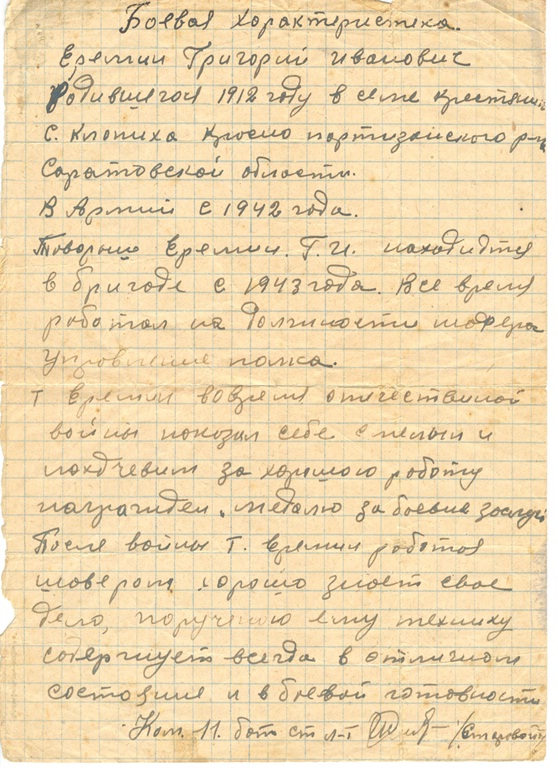 Боевая характеристика.
Еремин Григорий Иванович
Родившегося 1912 году в семе крестянин
с. Клопиха Красно партизанского р-на
Саратовской области.
В Армий с 1942 года.
Товарищ Еремин. Г. И. находится
в бригаде с 1943 года. Все время
работал на должности шофера
управление полка.
т Еремин вовремя отечественной
войны показал себе смелым и
находчевым за хорошою работу
награжден. медалю за боевые заслуги
После войны т. Еремин работая
шовером, хорошо знает свое
дело, поручению ему технику
содержует всегда в отличном
состояние и в боевой готовности
Ком. 11. бат ст л-т